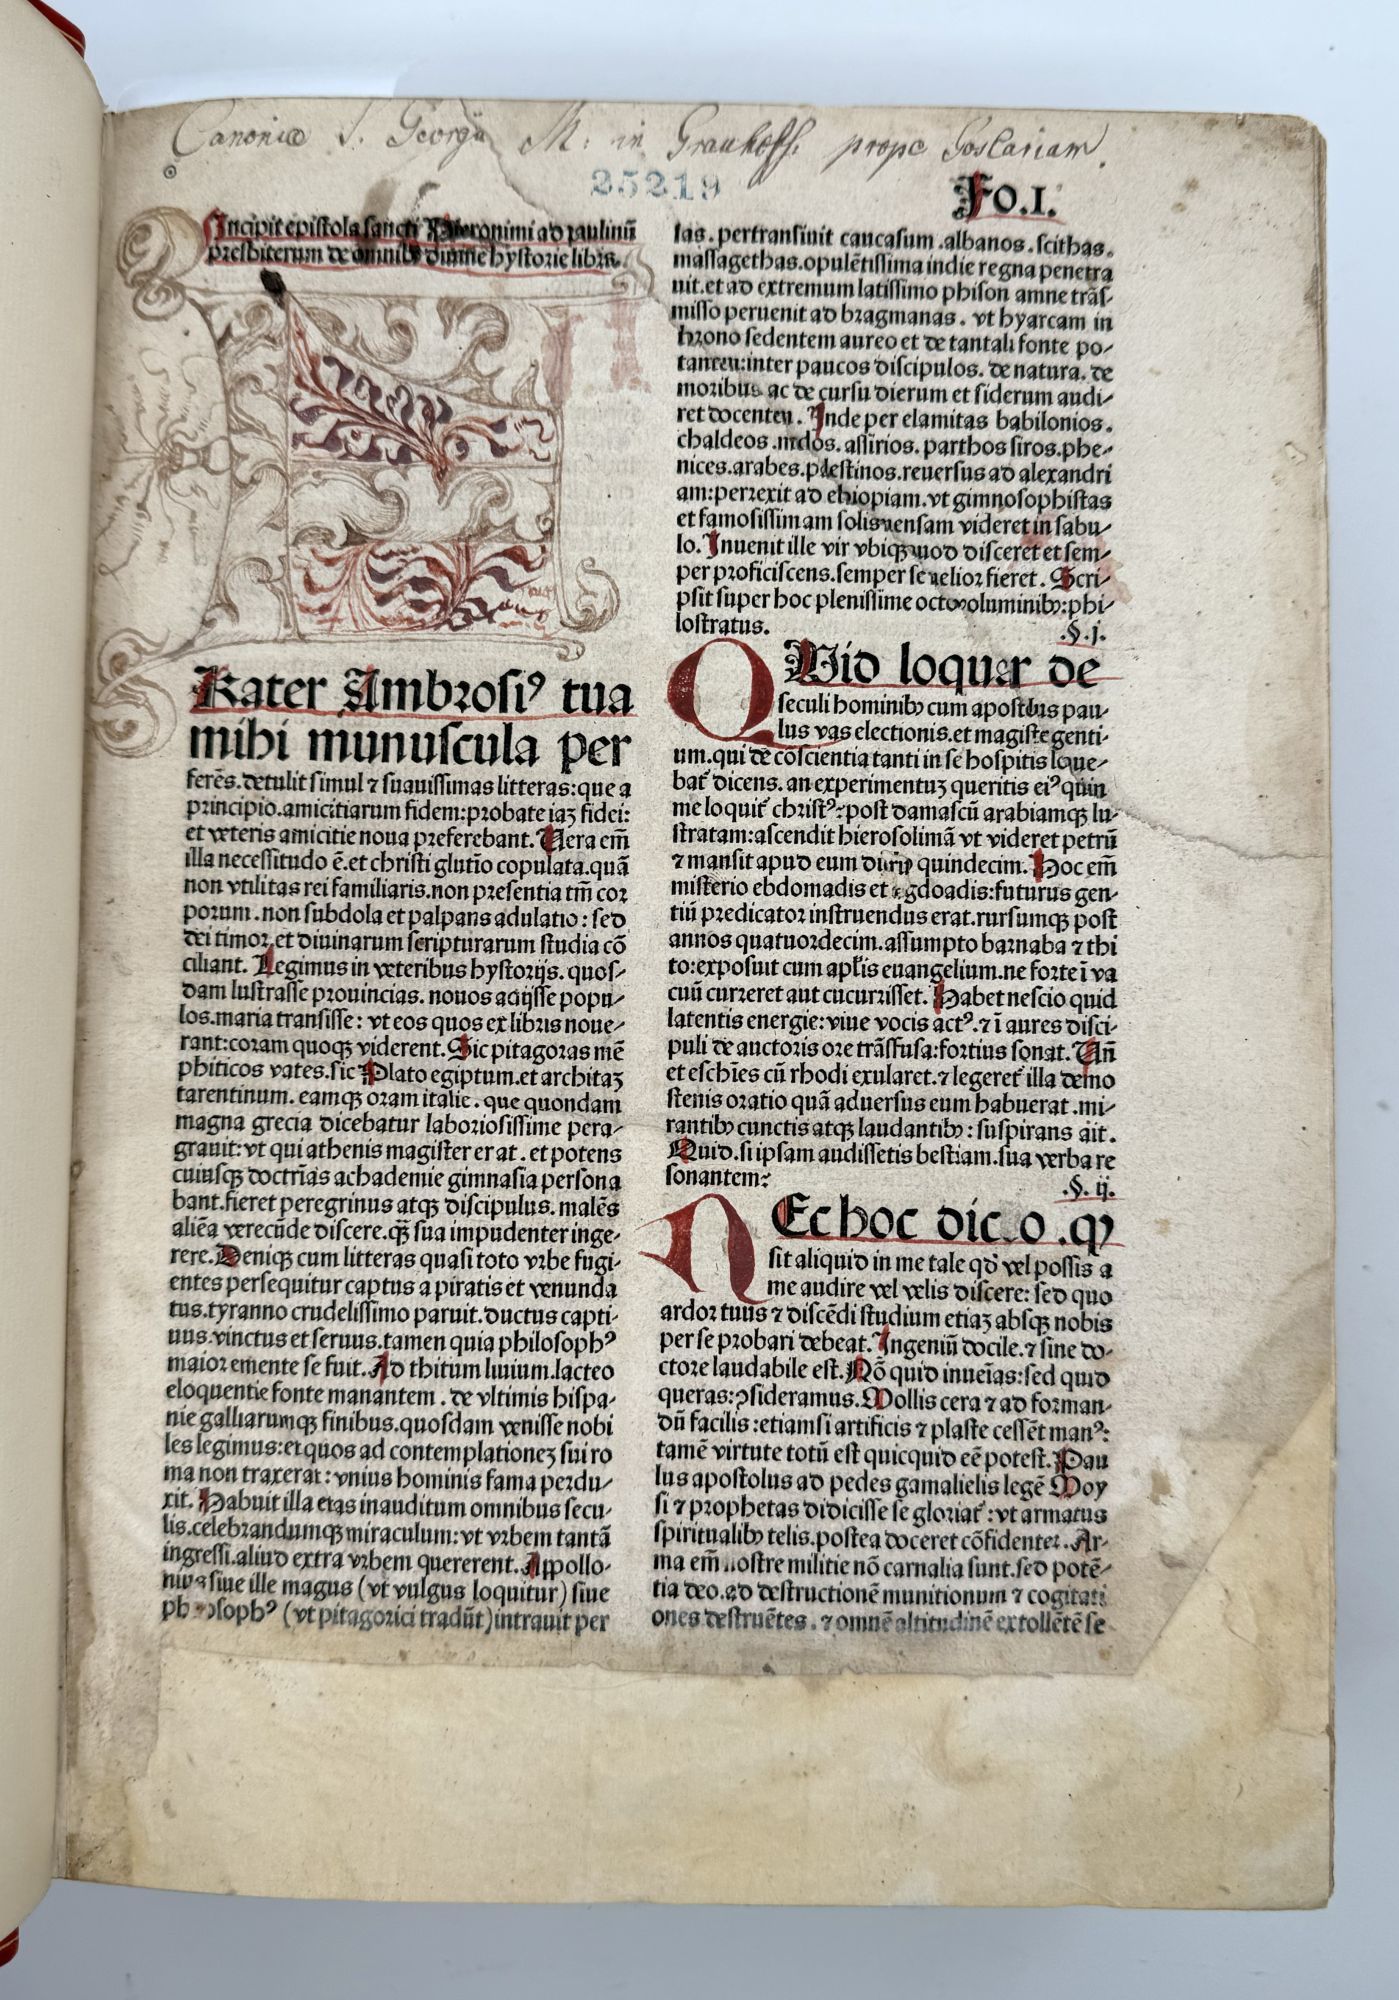 Canoniæ S. Georgii M. in Grauhoff. prope Goslariam.
25219
Fo.I.
Incipit epistola sancti Hieronimi ad paulinū
presbiterum de omnibꝰ diuine hystorie libris.
Rater Ambrosiꝰ tua
mihi munuscula per
ferēs.detulit simul ⁊ suauissimas litteras:que a
principio.amicitiarum fidem:probate iaꝫ fidei:
et veteris amicitie noua preferebant. Uera em̄
illa necessitudo ē.et christi glutīo copulata.quā
non vtilitas rei familiaris.non presentia tm̄ cor
porum.non subdola et palpans adulatio: sed
dei timor.et diuinarum scripturarum studia cō
ciliant. Legimus in veteribus hystorijs. quos⸗
dam lustrasse prouincias. nouos adijsse popu⸗
los.maria transisse: vt eos quos ex libris noue⸗
rant:coram quoqꝫ viderent. Sic pitagoras mē
phiticos vates.sic Plato egiptum.et architaꝫ
tarentinum. eamqꝫ oram italie. que quondam
magna grecia dicebatur laboriosissime pera⸗
grauit: vt qui athenis magister erat. et potens
cuiusqꝫ doctrīas achademie gimnasia persona
bant.fieret peregrinus atqꝫ discipulus. malēs
aliēa verecūde discere.qꝫ̄ sua impudenter inge⸗
rere. Deniqꝫ cum litteras quasi toto vrbe fugi⸗
entes persequitur captus a piratis et venunda
tus.tyranno crudelissimo paruit. ductus capti⸗
uus.vinctus et seruus.tamen quia philosophꝰ
maior emente se fuit. Ad thitum liuium.lacteo
eloquentie fonte manantem. de vltimis hispa⸗
nie galliarumqꝫ finibus.quosdam venisse nobi
les legimus:et quos ad contemplationeꝫ sui ro
ma non traxerat: vnius hominis fama perdu⸗
xit. Habuit illa etas inauditum omnibus secu⸗
lis.celebrandumqꝫ miraculum: vt vrbem tantā
ingressi.aliud extra vrbem quererent. Appollo⸗
nius siue ille magus (vt vulgus loquitur) siue
philosophꝰ (vt pitagorici tradūt) intrauit per
sas. pertransiuit caucasum.albanos.scithas.
massagethas.opulētissima indie regna penetra
uit.et ad extremum latissimo phison amne trās⸗
misso peruenit ad bragmanas. vt hyarcam in
throno sedentem aureo et de tantali fonte po⸗
tantem:inter paucos discipulos. de natura. de
moribus ac de cursu dierum et siderum audi⸗
ret docentem. Inde per elamitas babilonios.
chaldeos.medos.assirios. parthos siros.phe⸗
nices.arabes.palestinos.reuersus ad alexandri
am:perrexit ad ethiopiam.vt gimnosophistas
et famosissimam solis mensam videret in sabu⸗
lo. Inuenit ille vir vbiqꝫ quod disceret et sem⸗
per proficiscens.semper se melior fieret. Scri⸗
psit super hoc plenissime octo voluminibꝰ:phi⸗
lostratus.
.§.j.
QUid loquar de
seculi hominibꝰ cum apostolus pau⸗
lus vas electionis.et magister genti⸗
um.qui de cōscientia tanti in se hospitis loque⸗
bat̄ dicens. an experimentuꝫ queritis eiꝰ quin
me loquit̄ christꝰ: post damascū arabiamqꝫ lu⸗
stratam:ascendit hierosolimā vt videret petrū
⁊ mansit apud eum diebꝰ quindecim. Hoc em̄
misterio ebdomadis et ogdoadis:futurus gen⸗
tiū predicator instruendus erat.rursumqꝫ post
annos quatuordecim.assumpto barnaba ⁊ thi
to:exposuit cum apl̄is euangelium.ne forte ī va
cuū curreret aut cucurrisset. Habet nescio quid
latentis energie: viue vocis actꝰ.⁊ ī aures disci⸗
puli de auctoris ore trāsfusa:fortius sonat. Un̄
et eschīes cū rhodi exularet.⁊ legeret̄ illa demo
stenis oratio quā aduersus eum habuerat.mi⸗
rantibꝰ cunctis atqꝫ laudantibꝰ: suspirans ait.
Quid.si ipsam audissetis bestiam.sua verba re
sonantem?
.§. ij.
NEc hoc dico.qꝙ
sit aliquid in me tale qd̓ vel possis a
me audire vel velis discere: sed quo
ardor tuus ⁊ discēdi studium etiaꝫ absqꝫ nobis
per se probari debeat. Ingeniū docile.⁊ sine do⸗
ctore laudabile est. Nō quid inueīas:sed quid
queras:ꝯsideramus. Mollis cera ⁊ ad forman⸗
dū facilis:etiamsi artificis ⁊ plaste cessēt manꝰ:
tamē virtute totū est quicquid eē potest. Pau
lus apostolus ad pedes gamalielis legē Moy
si ⁊ prophetas didicisse se gloriat̄: vt armatus
spiritualibꝰ telis.postea doceret cōfidenter. Ar⸗
ma em̄ nostre militie nō carnalia sunt.sed potē⸗
tia deo.ad destructionē munitionum ⁊ cogitati
ones destruētes. ⁊ omnē altitudinē extollētē se